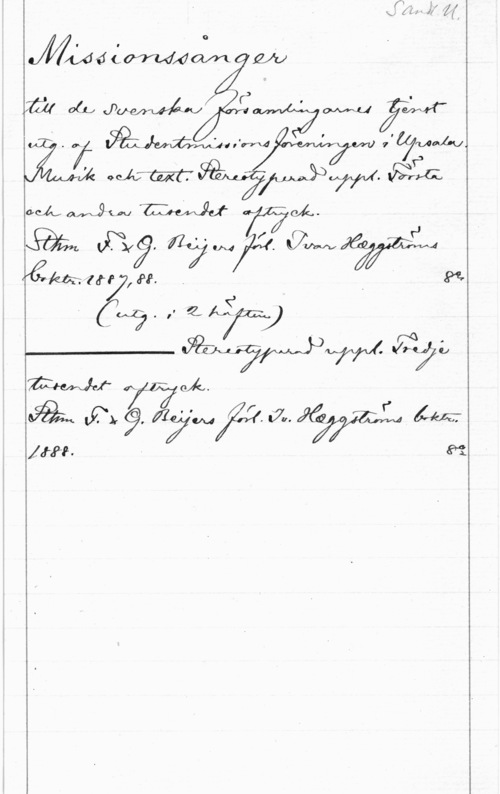 Samk U.
Missionssånger
till de svenska församlingarnes tjenst
utg. af Studentmissionsföreningen i Upsala.
Musik och text. Stereotyperad uppl. Första
och andra tusendet aftryck.
Sthm F. & G. Beijers förl. Ivar Hæggströms
boktr. 1887, 88. 8º
(utg. i 2 häften)
Stereotyperad uppl. Tredje
tusendet aftryck.
Sthm F. & G. Beijers förl. Iv. Hæggströms boktr.
1888. 8º